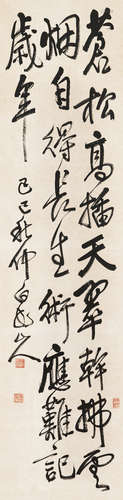 蒼松高插天翠幹拂雲
烟自得長生術應難記
歲年 己巳秋仲 白龍山人